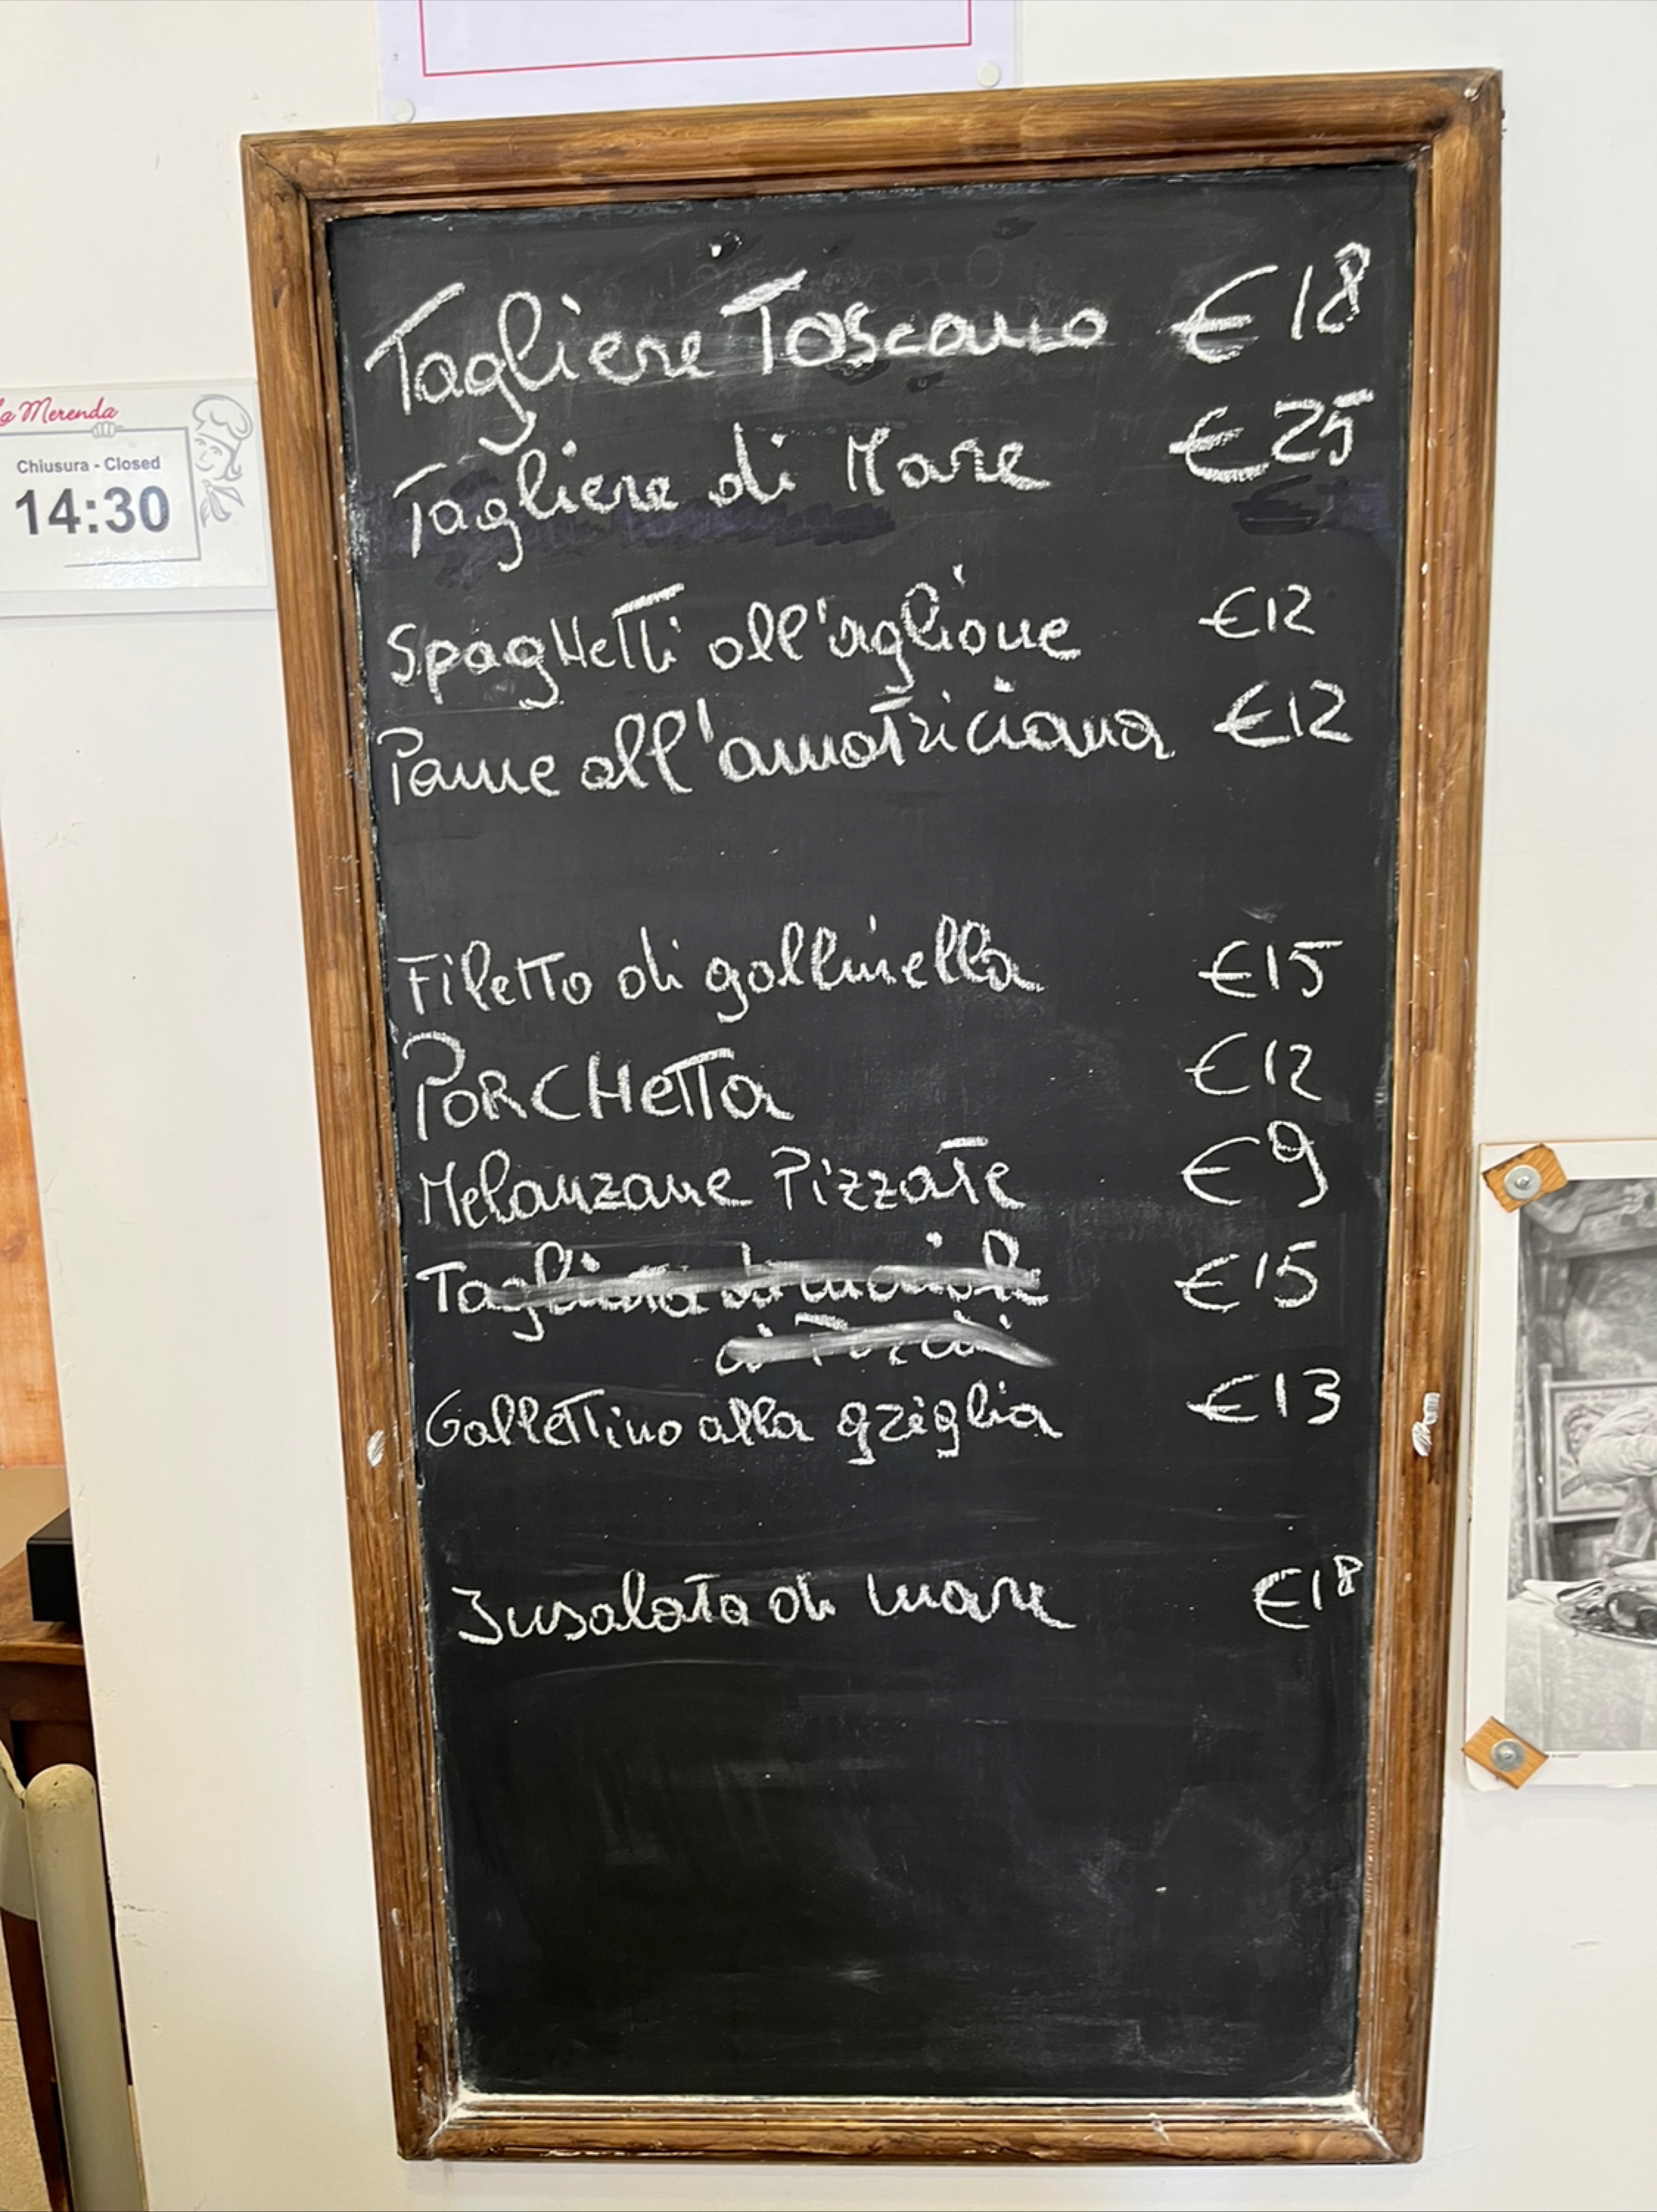 La Merenda
Chiusura - Closed
14:30
Tagliere Toscano €18
Tagliere di Mare €25
Spaghetti all'aglione €12
Penne all'amatriciana €12
Filetto di gallinella €15
PORCHETTA €12
Melanzane Pizzate €9
Tagliata di maiale €15
Gallettino alla griglia €13
Insalata di mare €18